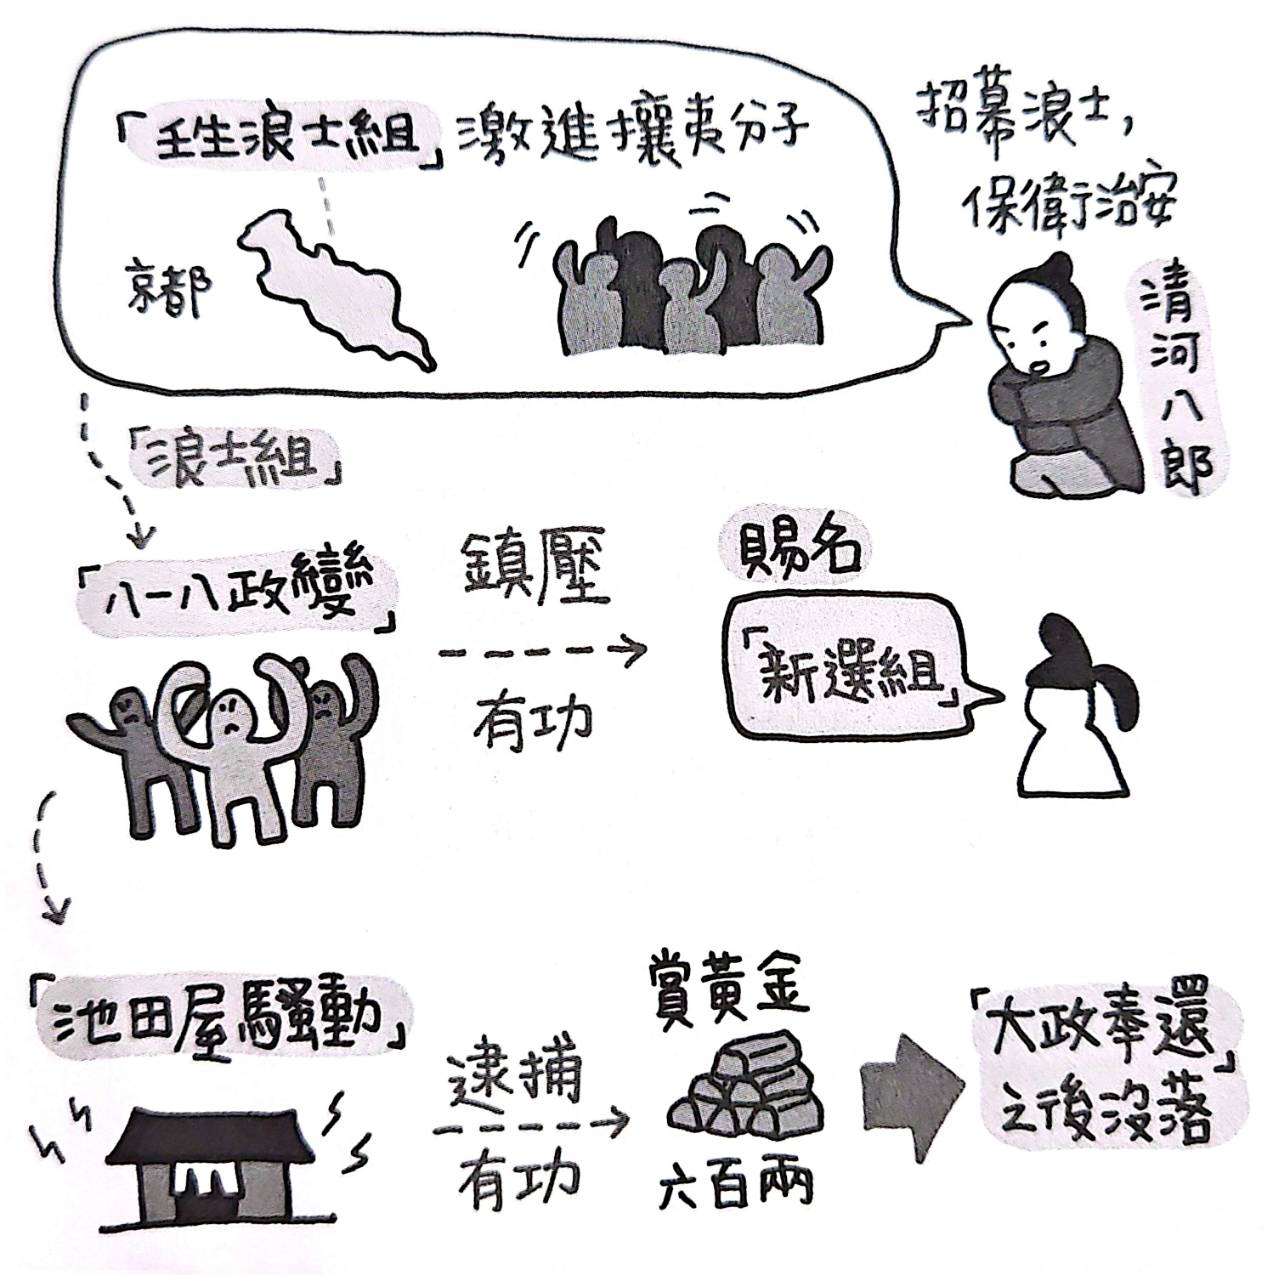 「壬生浪士組」激進攘夷分子
京都
招幕浪士，
保衛治安
清河八郎
「浪士組」
「八一八政變」
鎮壓
有功
賜名
「新選組」
「池田屋騷動」
逮捕
有功
賞黃金
六百兩
「大政奉還」
之後沒落